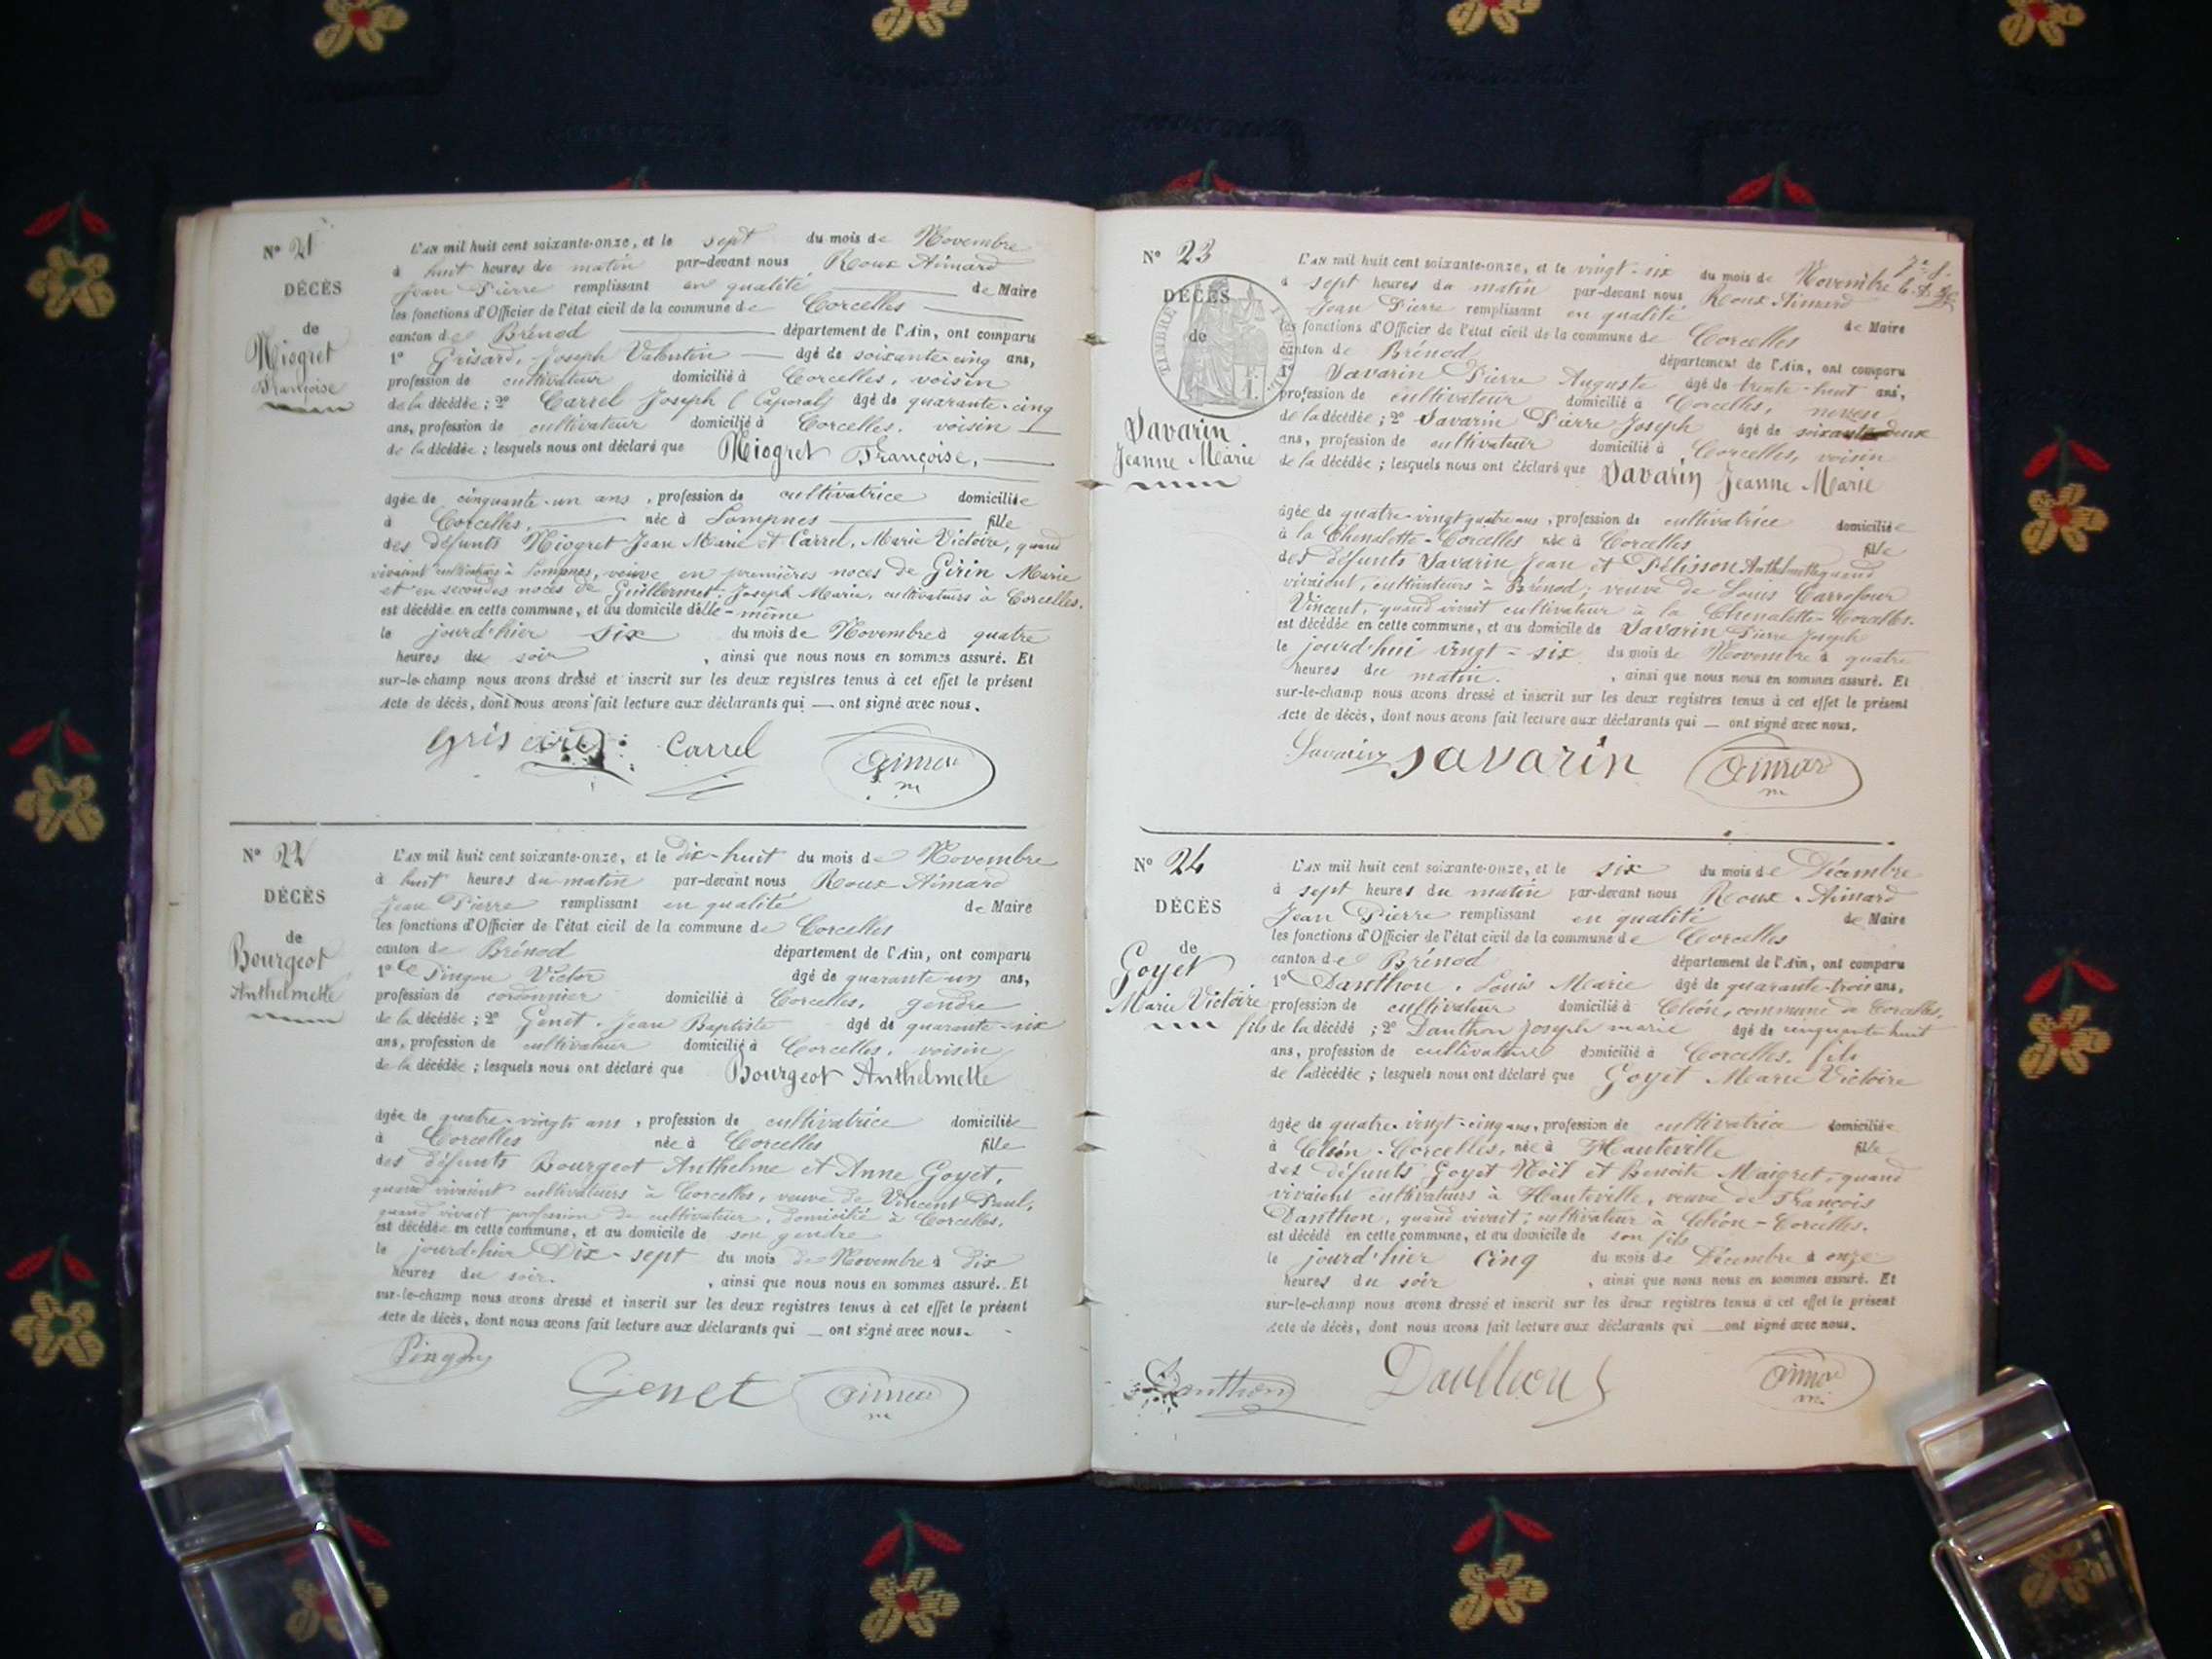 N° 21
DÉCÈS
de
Niogret
Françoise
L'AN mil huit cent soixante-onze, et le sept du mois de Novembre
à huit heures du matin par-devant nous Roux Aimard
Jean Pierre remplissant en qualité de Maire
les fonctions d'Officier de l'état civil de la commune de Corcelles
canton de Brénod département de l'Ain, ont comparu
1° Grisard, Joseph Valentin âgé de soixante-cinq ans,
profession de cultivateur domicilié à Corcelles, voisin
de la décédée ; 2° Carrel Joseph (Caporal) âgé de quarante-cinq
ans, profession de cultivateur domicilié à Corcelles, voisin
de la décédée ; lesquels nous ont déclaré que Niogret Françoise,
âgée de cinquante-un ans, profession de cultivatrice domiciliée
à Corcelles, née à Lompnes fille
des défunts Niogret Jean Marie et Carrel, Marie Victoire, quand
vivaient cultivateurs à Lompnes, veuve en premières noces de Girin Marie
et en secondes noces de Guillermet, Joseph Marie, cultivateurs à Corcelles.
est décédée en cette commune, et au domicile d'elle-même
le jourd'hier six du mois de Novembre à quatre
heures du soir, ainsi que nous nous en sommes assuré. Et
sur-le-champ nous avons dressé et inscrit sur les deux registres tenus à cet effet le présent
Acte de décès, dont nous avons fait lecture aux déclarants qui — ont signé avec nous.
Grisard Carrel Aimar
m
N° 22
DÉCÈS
de
Bourgeot
Anthelmette
L'AN mil huit cent soixante-onze, et le dix-huit du mois de Novembre
à huit heures du matin par-devant nous Roux Aimard
Jean Pierre remplissant en qualité de Maire
les fonctions d'Officier de l'état civil de la commune de Corcelles
canton de Brénod département de l'Ain, ont comparu
1° Pingon Victor âgé de quarante-un ans,
profession de cordonnier domicilié à Corcelles, gendre
de la décédée ; 2° Genet, Jean Baptiste âgé de quarante-six
ans, profession de cultivateur domicilié à Corcelles, voisin
de la décédée ; lesquels nous ont déclaré que Bourgeot Anthelmette
âgée de quatre-vingts ans, profession de cultivatrice domiciliée
à Corcelles née à Corcelles fille
des défunts Bourgeot Anthelme et Anne Goyet,
quand vivaient cultivateurs à Corcelles, veuve de Vincent Paul,
quand vivait profession de cultivateur, domicilié à Corcelles.
est décédée en cette commune, et au domicile de son gendre
le jourd'hier Dix-sept du mois de Novembre à dix
heures du soir, ainsi que nous nous en sommes assuré. Et
sur-le-champ nous avons dressé et inscrit sur les deux registres tenus à cet effet le présent
Acte de décès, dont nous avons fait lecture aux déclarants qui — ont signé avec nous.
Pingon
Genet Aimar
m
N° 23
DÉCÈS
de
TIMBRE
Savarin
Jeanne Marie
L'AN mil huit cent soixante-onze, et le vingt-six du mois de Novembre
à sept heures du matin par-devant nous Roux Aimard
Jean Pierre remplissant en qualité de Maire
les fonctions d'Officier de l'état civil de la commune de Corcelles
canton de Brénod département de l'Ain, ont comparu
1° Savarin Pierre Auguste âgé de trente-huit ans,
profession de cultivateur domicilié à Corcelles, neveu
de la décédée ; 2° Savarin Pierre Joseph âgé de soixante-deux
ans, profession de cultivateur domicilié à Corcelles, voisin
de la décédée ; lesquels nous ont déclaré que Savarin Jeanne Marie
âgée de quatre-vingt quatre ans, profession de cultivatrice domiciliée
à la Chenalette-Corcelles née à Corcelles fille
des défunts Savarin Jean et Pélisson Anthelmette quand
vivaient, cultivateurs à Brénod, veuve de Louis Carrefour
Vincent, quand vivait cultivateur à la Chenalette-Corcelles.
est décédée en cette commune, et au domicile de Savarin Pierre Joseph
le jourd'hui vingt-six du mois de Novembre à quatre
heures du matin, ainsi que nous nous en sommes assuré. Et
sur-le-champ nous avons dressé et inscrit sur les deux registres tenus à cet effet le présent
Acte de décès, dont nous avons fait lecture aux déclarants qui — ont signé avec nous.
Savarin Savarin Aimar
m
N° 24
DÉCÈS
de
Goyet
Marie Victoire
L'AN mil huit cent soixante-onze, et le six du mois de Décembre
à sept heures du matin par-devant nous Roux Aimard
Jean Pierre remplissant en qualité de Maire
les fonctions d'Officier de l'état civil de la commune de Corcelles
canton de Brénod département de l'Ain, ont comparu
1° Danthon, Louis Marie âgé de quarante-trois ans,
profession de cultivateur domicilié à Cléon, commune de Corcelles,
fils de la décédé ; 2° Danthon Joseph marie âgé de cinquante-huit
ans, profession de cultivateur domicilié à Corcelles, fils
de la décédée ; lesquels nous ont déclaré que Goyet Marie Victoire
âgée de quatre-vingt-cinq ans, profession de cultivatrice domiciliée
à Cléon-Corcelles, née à Hauteville fille
des défunts Goyet Noël et Benoîte Maigret, quand
vivaient cultivateurs à Hauteville, veuve de François
Danthon, quand vivait, cultivateur à Cléon-Corcelles.
est décédé en cette commune, et au domicile de son fils
le jourd'hier cinq du mois de Décembre à onze
heures du soir, ainsi que nous nous en sommes assuré. Et
sur-le-champ nous avons dressé et inscrit sur les deux registres tenus à cet effet le présent
Acte de décès, dont nous avons fait lecture aux déclarants qui — ont signé avec nous.
Danthon Danthon Aimar
m